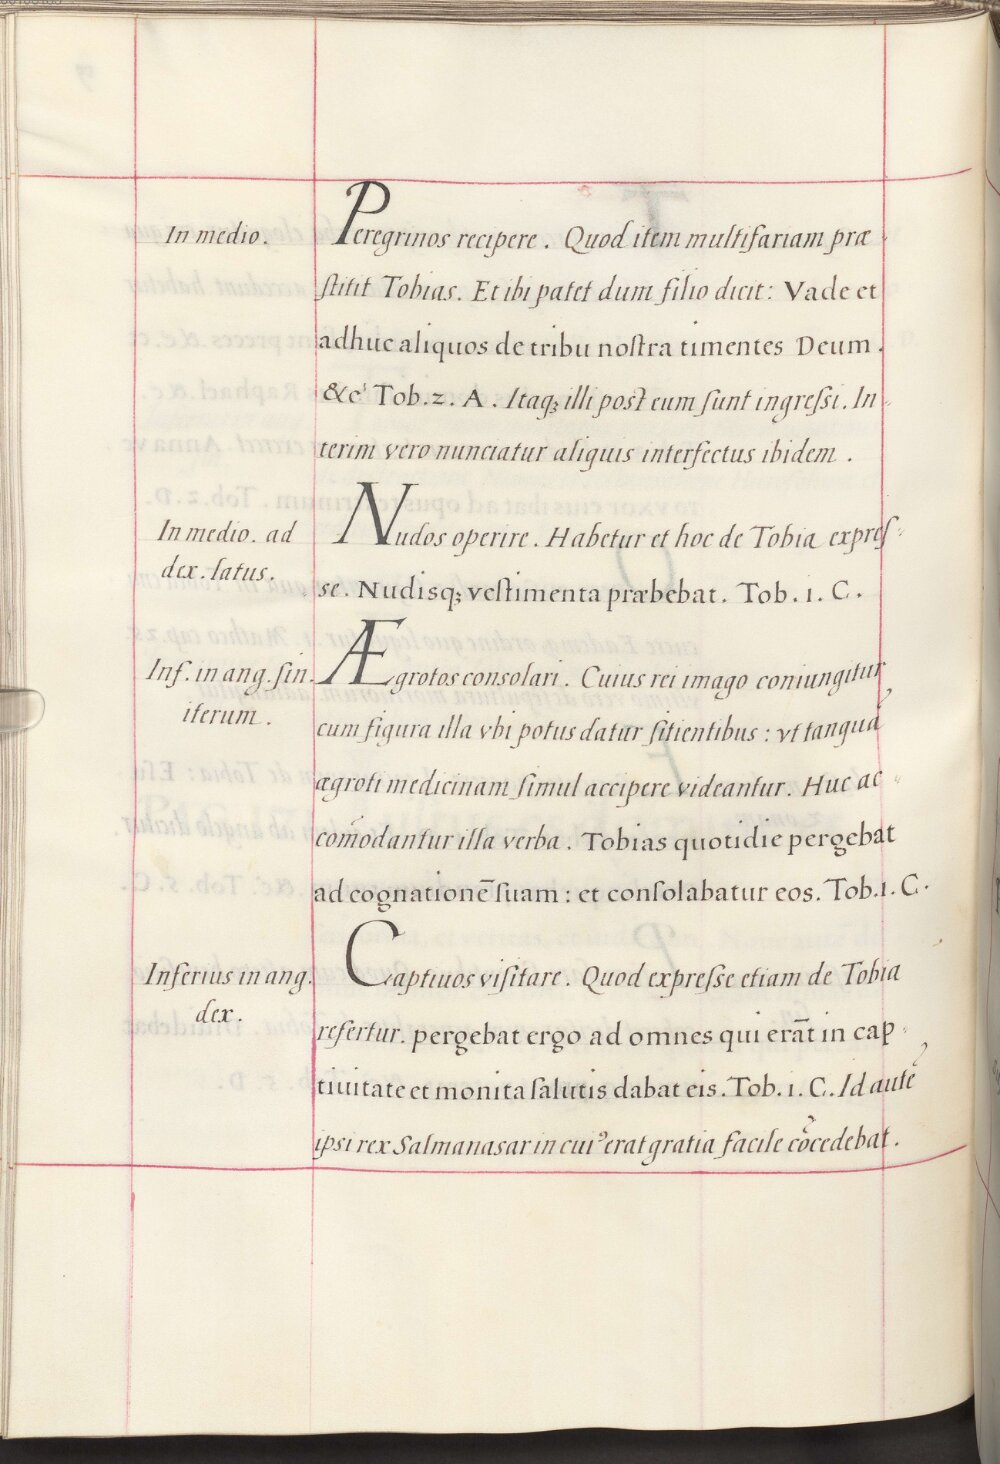 In medio.
Peregrinos recipere. Quod item multifariam præ-
ſtitit Tobias. Et ibi patet dum filio dicit: Vade et
adhuc aliquos de tribu noſtra timentes Deum.
&c' Tob. 2. A. Itaq; illi poſt eum ſunt ingreſſi. In-
terim vero nunciatur aliquis interfectus ibidem.
In medio. ad
dex. latus.
Nudos operire. Habetur et hoc de Tobia expreſ-
se. Nudisq; veſtimenta præbebat. Tob. 1. C.
Inf. in ang. ſin.
iterum.
Ægrotos consolari. Cuius rei imago coniungitur
cum figura illa vbi potus datur ſitientibus: vt tanquã
ægroti medicinam ſimul accipere videantur. Huc ac-
cõmodantur illa verba. Tobias quotidie pergebat
ad cognationē ſuam: et conſolabatur eos. Tob. 1. C.
Inferius in ang.
dex.
Captiuos viſitare. Quod expreſse etiam de Tobia
refertur. pergebat ergo ad omnes qui erāt in cap-
tiuitate et monita ſalutis dabat eis. Tob. 1. C. Id autẽ
ipsi rex Salmanasar in cuiꝰ erat gratia facile cõcedebat.